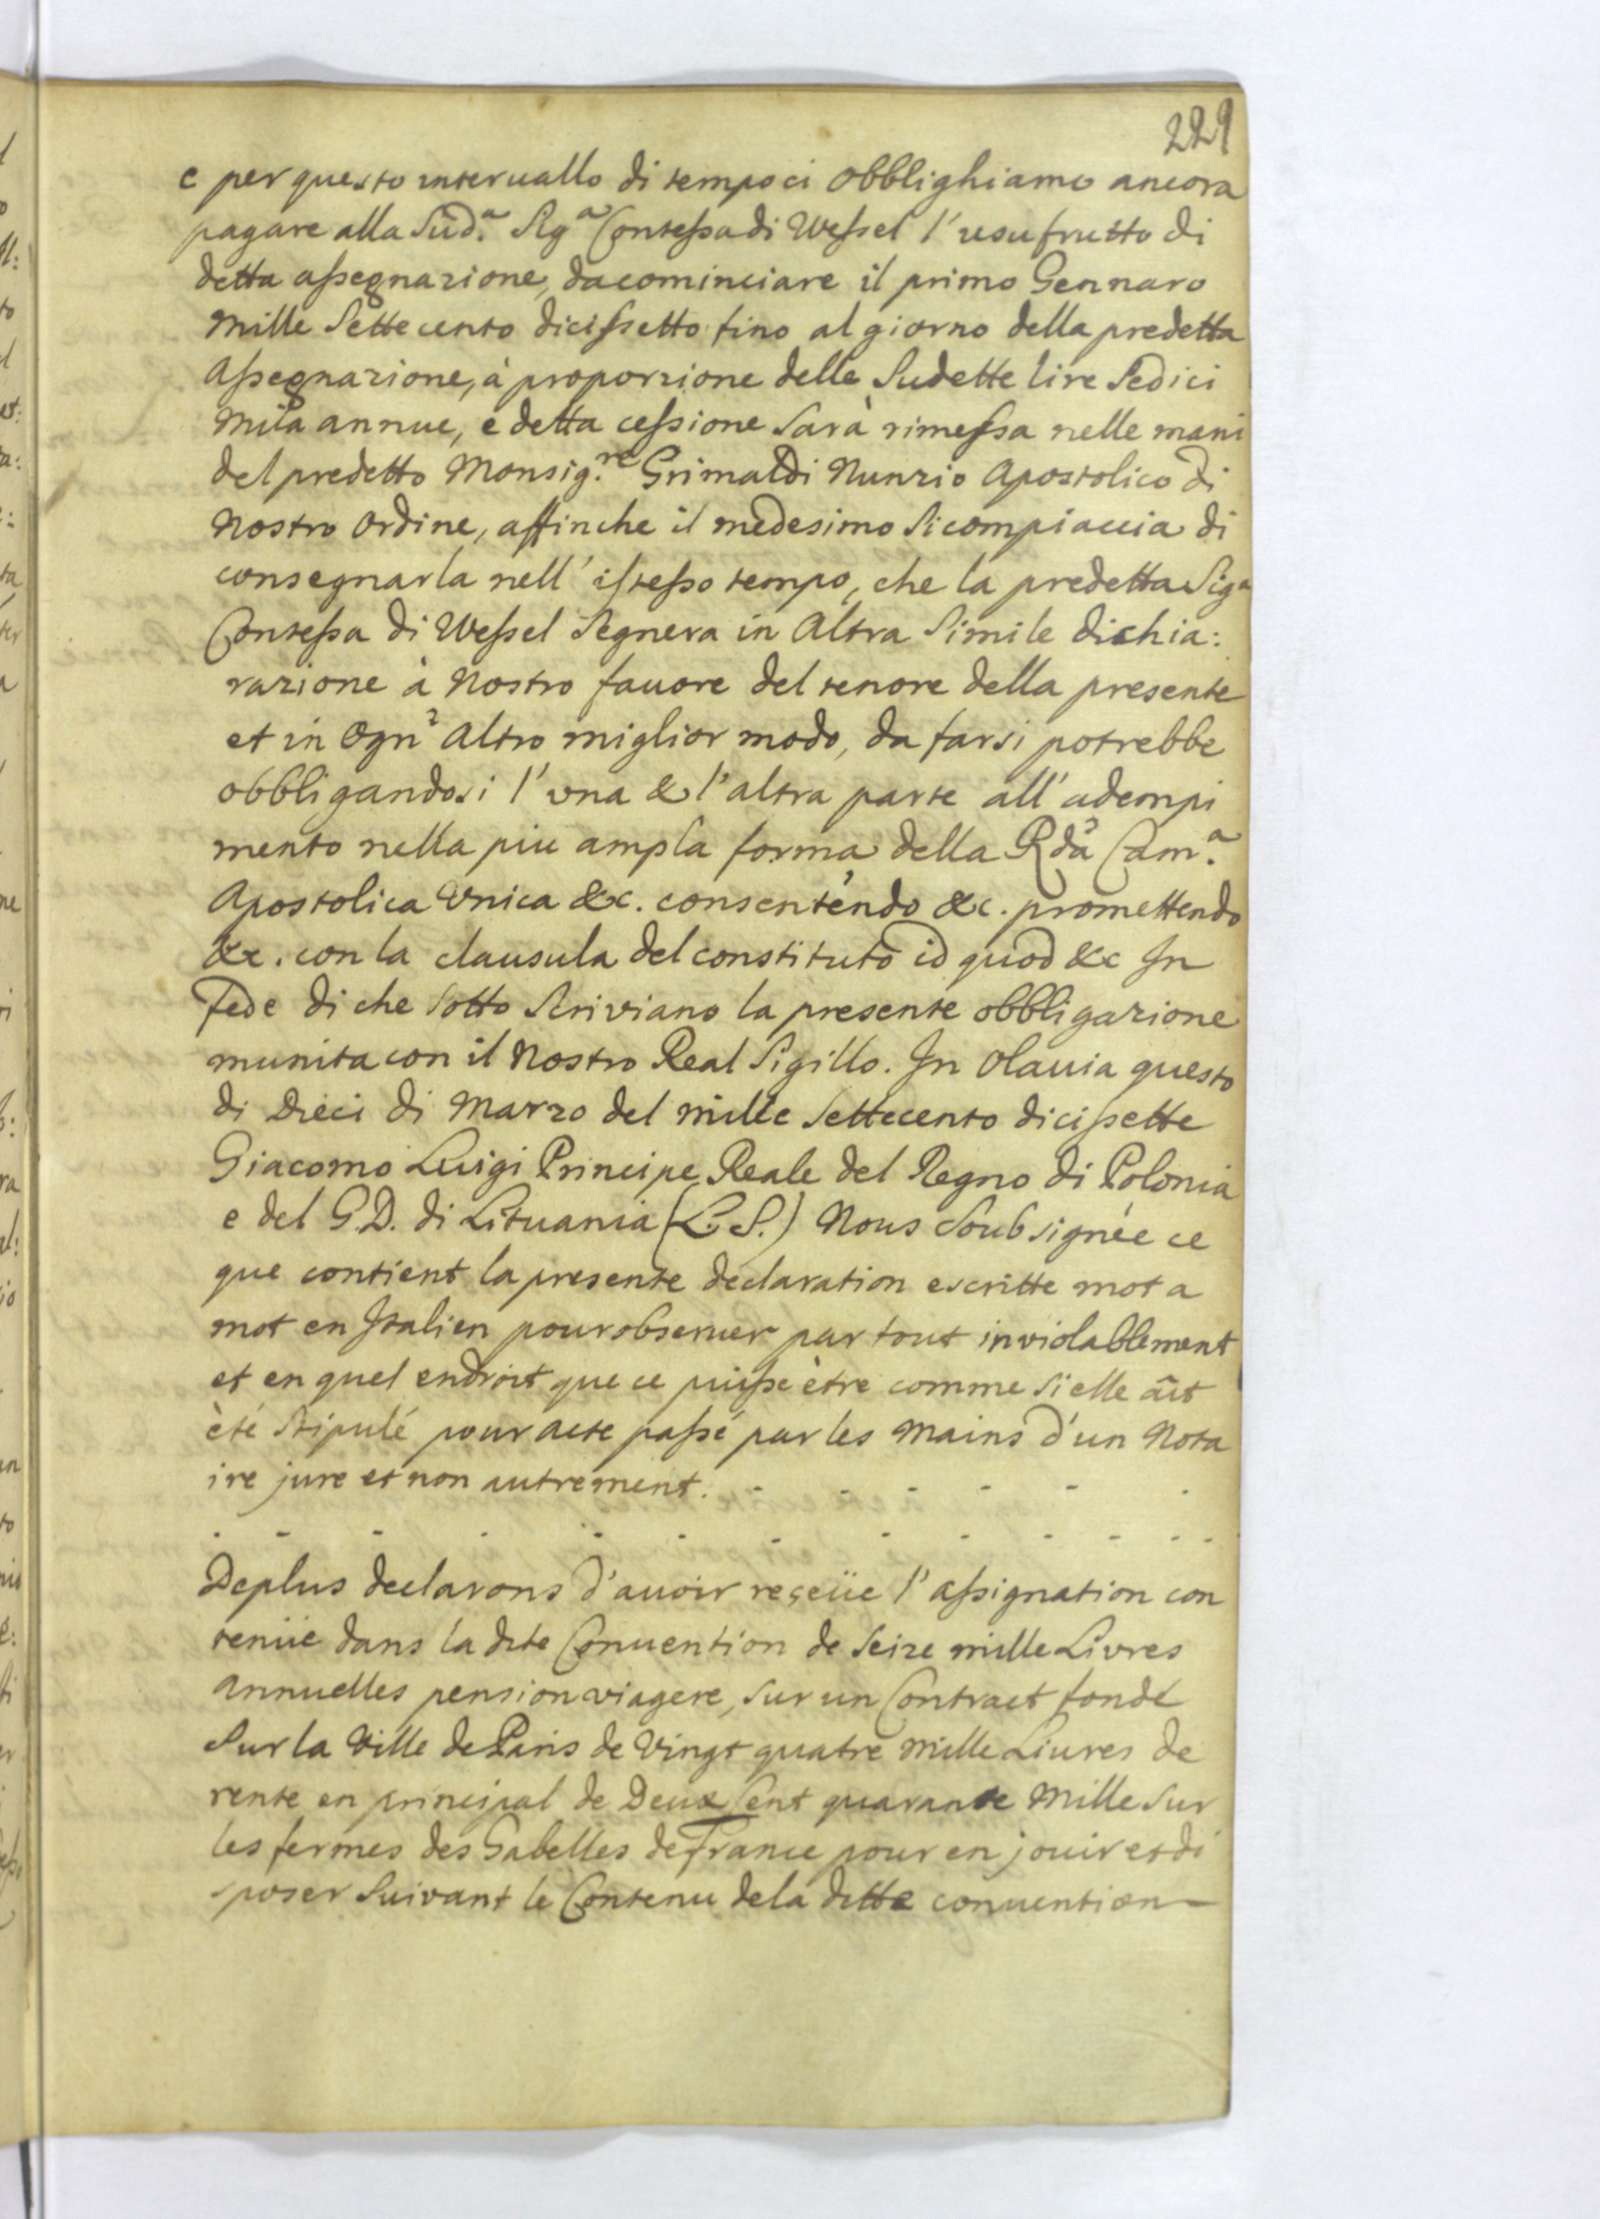 229
e per questo interuallo di tempo ci obblighiamo ancora
pagare alla Sud.a Sig.a Contessa di Wessel l'usufrutto di
detta assegnazione, da cominciare il primo Gennaro
Mille Settecento dicissetto fino al giorno della predetta
Assegnazione, à proporzione delle Sudette lire Sedici
Mila annue, e detta cessione sarà rimessa nelle mani
del predetto Monsig.re Grimaldi Nunzio Apostolico di
Nostro Ordine, affinche il medesimo si compiaccia di
consegnarla nell' istesso tempo, che la predetta Sig.a
Contessa di Wessel Segnera in Altra Simile dichia:
razione à Nostro fauore del tenore della presente
et in Ogn' Altro miglior modo, da farsi potrebbe
obbligandosi l'vna & l'altra parte all' adempi
mento nella piu ampla forma della Rda Cam.a
Apostolica Vnica &c. consentendo &c. promettendo
&c. con la clausula del constituto id quod &c In
Fede di che Sotto Scriviano la presente obbligazione
munita con il Nostro Real Sigillo. In Olauia questo
di Dieci di Marzo del mille Settecento dicissette
Giacomo Luigi Principe Reale del Regno di Polonia
e del G.D. di Lituania (L. S.) Nous Soub signée ce
que contient la presente declaration escritte mot a
mot en Italien pour obseruer par tout inviolablement
et en quel endroit que ce puisse être comme si elle aût
èté Stipulé pour acte passé par les Mains d'un Nota
ire jure et non autrement. - - - - - -
- - - - - - - - - - - -
De plus declarons d'auoir reçeüe l'assignation con
tenüe dans la dite Conuention de Seize mille Livres
Annuelles pension viagere, sur un Contract fondé
Sur la Ville de Paris de Vingt quatre Mille Liures de
rente en principal de Deux Cent quarante Mille sur
les fermes des Gabelles de France pour en jouir et di
sposer Suivant le Contenu de la ditte conuention